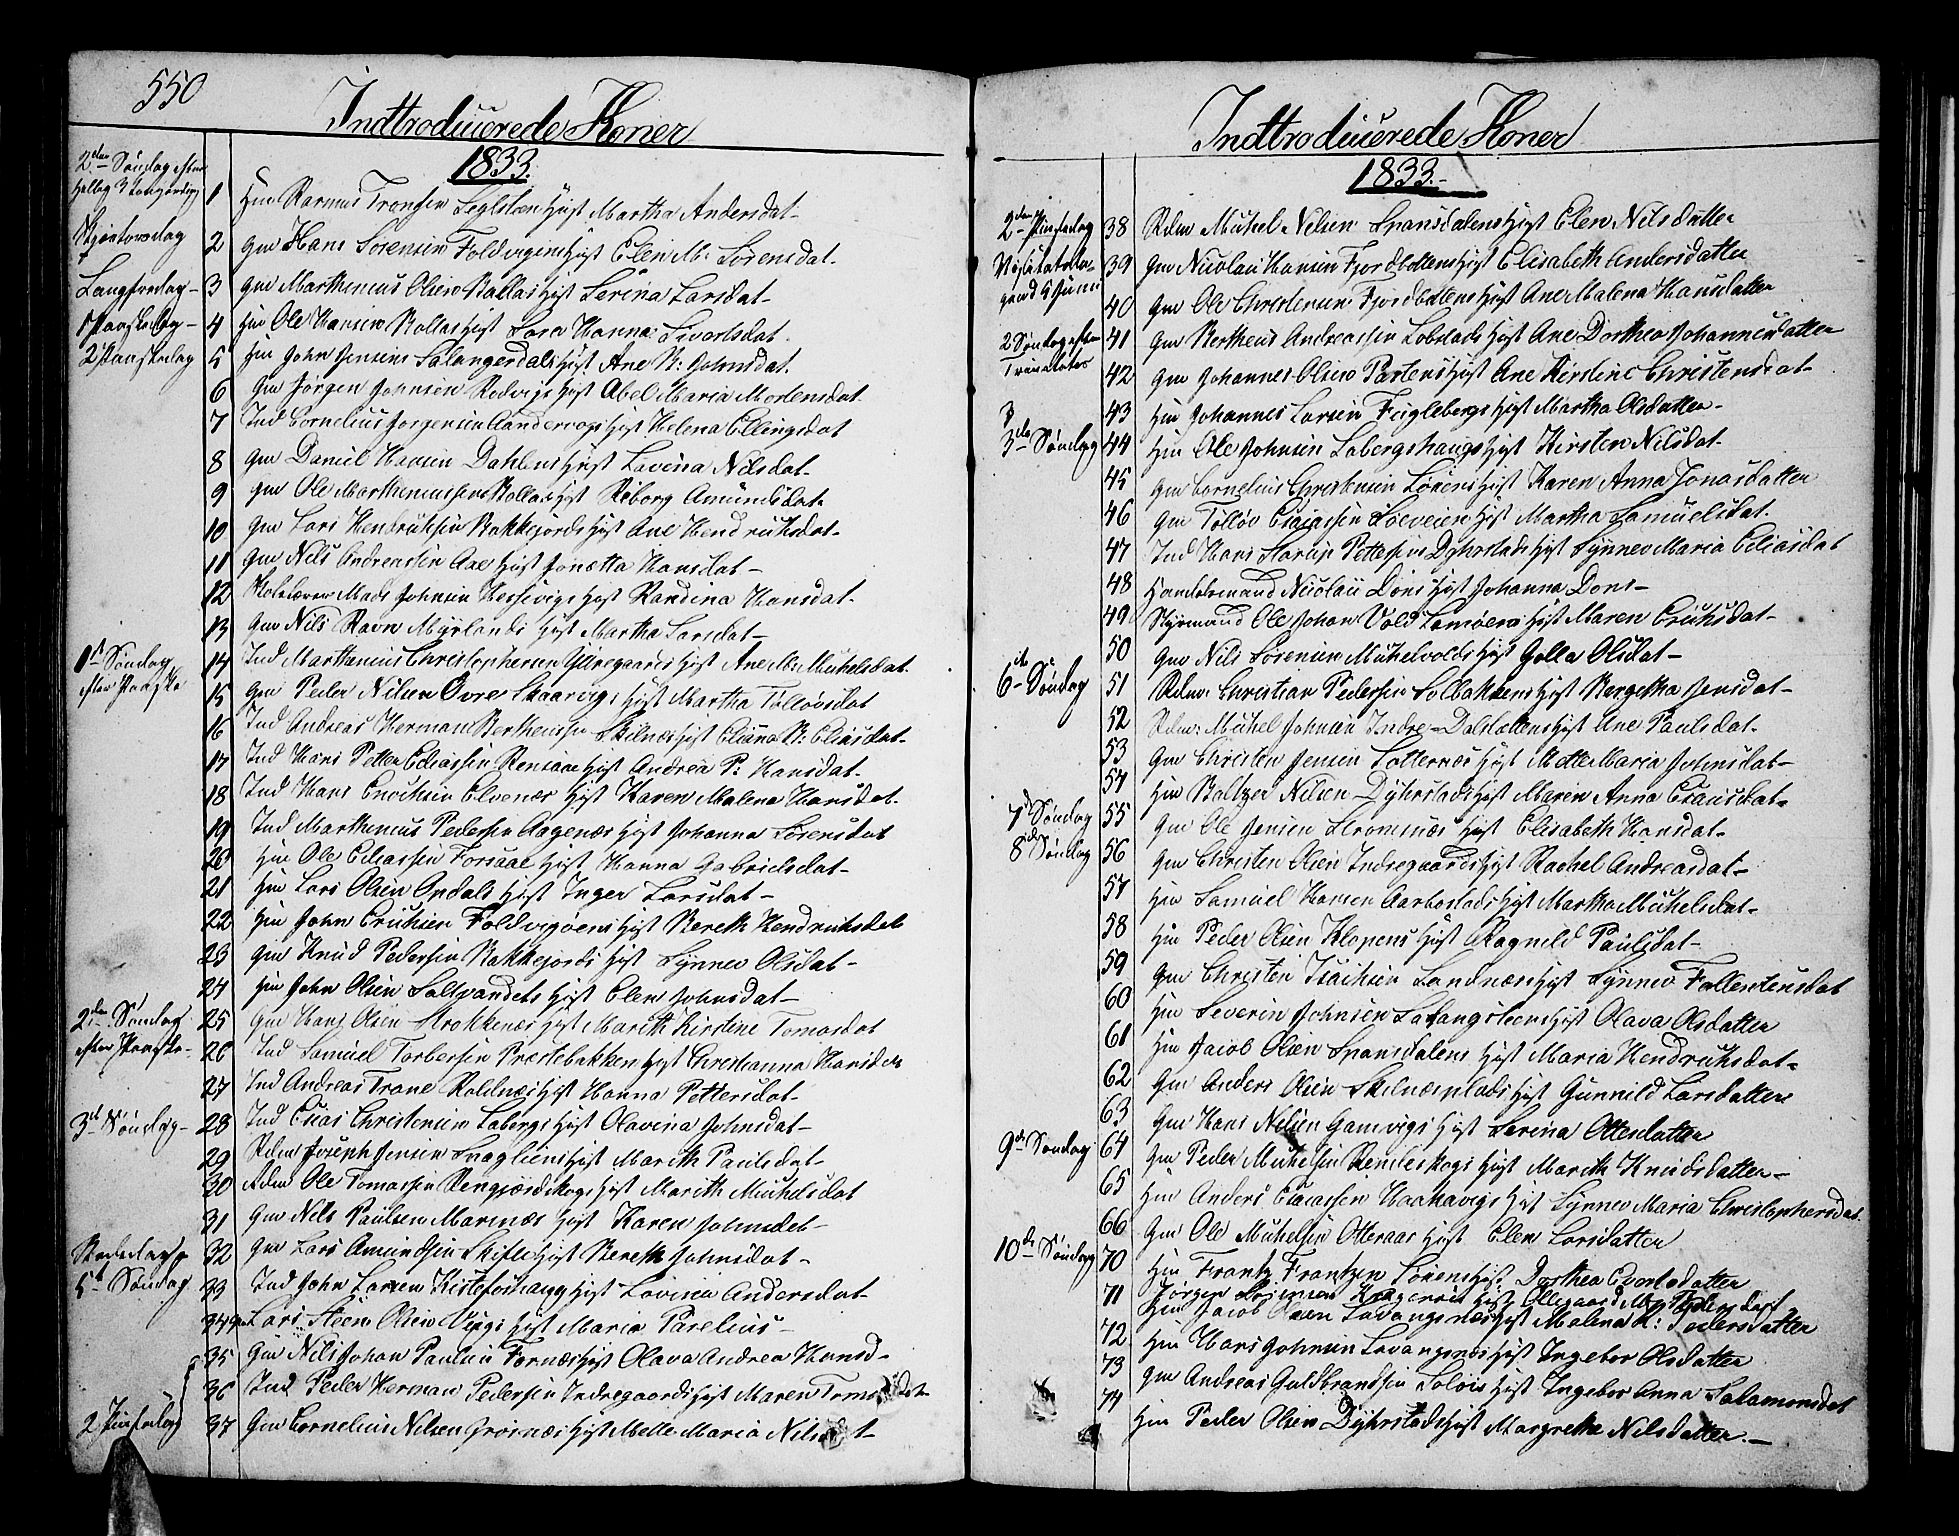 550
Indtroducerede Koner
1833.
2den Søndag efter
Hellig 3 Kongersdag
1 Hm Rasmus Transen Seglsteen Hust Martha Andersdat-
Skjertorsdag 2 Gm Hans Sørensen Foldvigens Hust Elen M: Sørensdat.
Langfredag- 3 Gm Marthenius Olsen Rollas Hust Serina Larsdat-
1 Paaskedag- 4 Hm Ole Hansen Rollas Hust Lara Hanna Sivertsdat.
2 Paaskedag 5 Hm John Jensens Salangerdals Hust Ane K: Johnsdat.
6 Gm Jørgen Johnsen Rodvigs Hust Abel Maria Mortensdat.
7 Ind Cornelius Jørgensen Aandervogs Hust Helena Ellingsdat
8 Gm Daniel Hansen Dahlens Hust Lavina Nilsdat-
9 Gm Ole Martheniussen Rollas Hust Riborg Amundsdat.
10 Gm Lars Hendrichsen Bakkejords Hust Ane Hendrichsdat-
11 Gm Nils Andreassen Aae Hust Jonetta Hansdat-
12 Skolelærer Mads Johnsen Hessevigs Hust Randina Hansdat.
13 Gm Nils Ravn Myrlands Hust Martha Larsdat-
1st Søndag
efter Paaske
14 Ind Marthenius Christophersen Ytregaards Hust Ane M: Michelsdat.
15 Gm Peder Nilsen Øvre Skaarvigs Hust Martha Tolløvsdat
16 Ind Andreas Herman Bertheussen Skilnæs Hust Eliina K: Eliasdat.
17 Ind Hans Petter Eliassen Rensaae Hust Andrea P: Hansdat.
18 Ind Hans Enochsen Elvenæs Hust Karen Malena Hansdat.
19 Ind Marthenius Pedersen Aagenæs Hust Johanna Sørensdat
20 Hm Ole Eliassen Forsaae Hust Hanna Gabrielsdat-
21 Hm Lars Olsen Andals Hust Inger Larsdat-
22 Hm John Erichsen Foldvigøens Hust Bereth Hendrichsdat
23 Gm Knud Pedersen Bakkejords Hust Synnev Olsdat-
24 Hm John Olsen Saltvandets Hust Elen Johnsdat-
2den Søndag
efter Paaske-
25 Gm Hans Olsen Strokkenæs Hust Marith Kirstine Tomasdat
26 Ind Samuel Torbersen Præstebakken Hust Christianna Hansdat
27 Ind Andreas Trane Roldnæs Hust Hanna Pettersdat-
3d Søndag- 28 Ind Esias Christensen Labergs Hust Olavina Johnsdat-
29 Rdm Joseph Jensen Snogliens Hust Marith Paulsdat-
30 Rdm Ole Tomassen Rengjerdskogs Hust Marith Michelsdat
31 Gm Nils Paulsen Marinæs Hust Karen Johnsdat-
Bededag 32 Gm Lars Amundsen Skiftes Hust Bereth Johnsdat-
5t Søndag 33 Ind John Larsen Kistefoshaug Hust Lovisa Andersdat
34 Gm Lars Steen Olsen Vigs Hust Maria Parelius-
35 Gm Nils Johan Paulsen Fornæs Hust Olava Andrea Hansd-
36 Ind Peder Herman Pedersen Indregaards Hust Maren Tomasdat
2 Pintsedag 37 Gm Cornelius Nilsen Grøsnæs Hust Mette Maria Nilsdat-
Indtroducerede Koner
1833.-
2den Pintsedag 38 Rdm Michel Nilsen Spansdalens Hust Elen Nilsdatter
39 Gm Nicolai Hansen Fjordbottens Hust Elisabeth Andersdatter
40 Gm Ole Christensen Fjordbottens Hust Ane Malena Hansdatter
2 Søndag efter
Trinitatis
41 Gm Bertheus Andreassen Lobstads Hust Ane Dorthea Johannesdatter
42 Gm Johannes Olsen Partens Hust Ane Kirstine Christensdat-
43 Hm Johannes Larsen Fuglebergs Hust Martha Olsdatter-
3die Søndag 44 Hm Ole Johnsen Labergshaugs Hust Kirsten Nilsdat-
45 Gm Cornelius Christensen Sørens Hust Karen Anna Jonasdatter
46 Gm Tolløv Esaiassen Soeveien Hust Martha Samuelsdat.
47 Ind Hans Startz Pettersen Dyhrstads Hust Synnev Maria Eliasdat
48 Handelsmand Nicolai Dons Hust Johanna Dons-
49 Styrmand Ole Johan Vold Lamøera Hust Maren Erichsdat-
50 Gm Nils Sørensen Michelvolds Hust Golla Olsdat-
6te Søndag 51 Rdm: Christian Pedersen Solbakkens Hust Bergetha Jensdat-
52 Rdm: Michel Johnsen Indre-Dalstottens Hust Ane Paulsdat.
53 Gm Christen Jensen Lotternæs Hust Mette Maria Johnsdat-
54 Hm Baltzer Nilsen Dyhrstads Hust Maren Anna Esaiasdat-
7d Søndag 55 Gm Ole Jensen Stromsnæs Hust Elisabeth Hansdat-
8de Søndag 56 Gm Christen Olsen Indregaards Hust Rachel Andreasdat-
57 Hm Samuel Hansen Aarbostads Hust Martha Michelsdat-
58 Hm Peder Olsen Klopens Hust Ragnild Paulsdat-
59 Gm Christen Isachsen Landnæs Hust Synnev Fallentensdat
60 Hm Severin Johnsen Salangsteens Hust Olava Olsdatter
61 Hm Jacob Olsen Spansdalens Hust Maria Hendrichsdat-
62 Gm Anders Olsen Skilnæsplads Hust Gunnild Larsdatter
63 Gm Hans Nilsen Gamvigs Hust Serina Ottesdatter
9de Søndag 64 Gm Peder Michelsen Renleskogs Hust Marith Knudsdatter-
65 Hm Anders Esaiassen Haakavigs Hust Synnev Maria Christophersdat.
66 Gm Ole Michelsen Otteraae Hust Elen Larsdatter
10de Søndag 70 Hm Frantz Frantzen Sørens Hust Dorthea Evertsdatter
71 Jørgen Sørensen Kragerøes Hust Ollegaard M: Pedersdatt
Hm Jacob Olsen Lavangsnæs Hust Malena K: Pedersdatter
72 Hm Hans Johnsen Lavangsnæs Hust Ingebor Olsdatter
73 Gm Andreas Guldbrandsen Soløis Hust Ingebor Anna Salamonsdat
74 Hm Peder Olsen Dyhrstads Hust Margrethe Nilsdatter.-